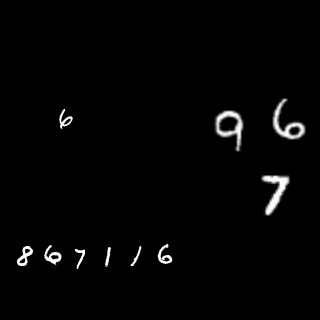 6
9 6
7
867116